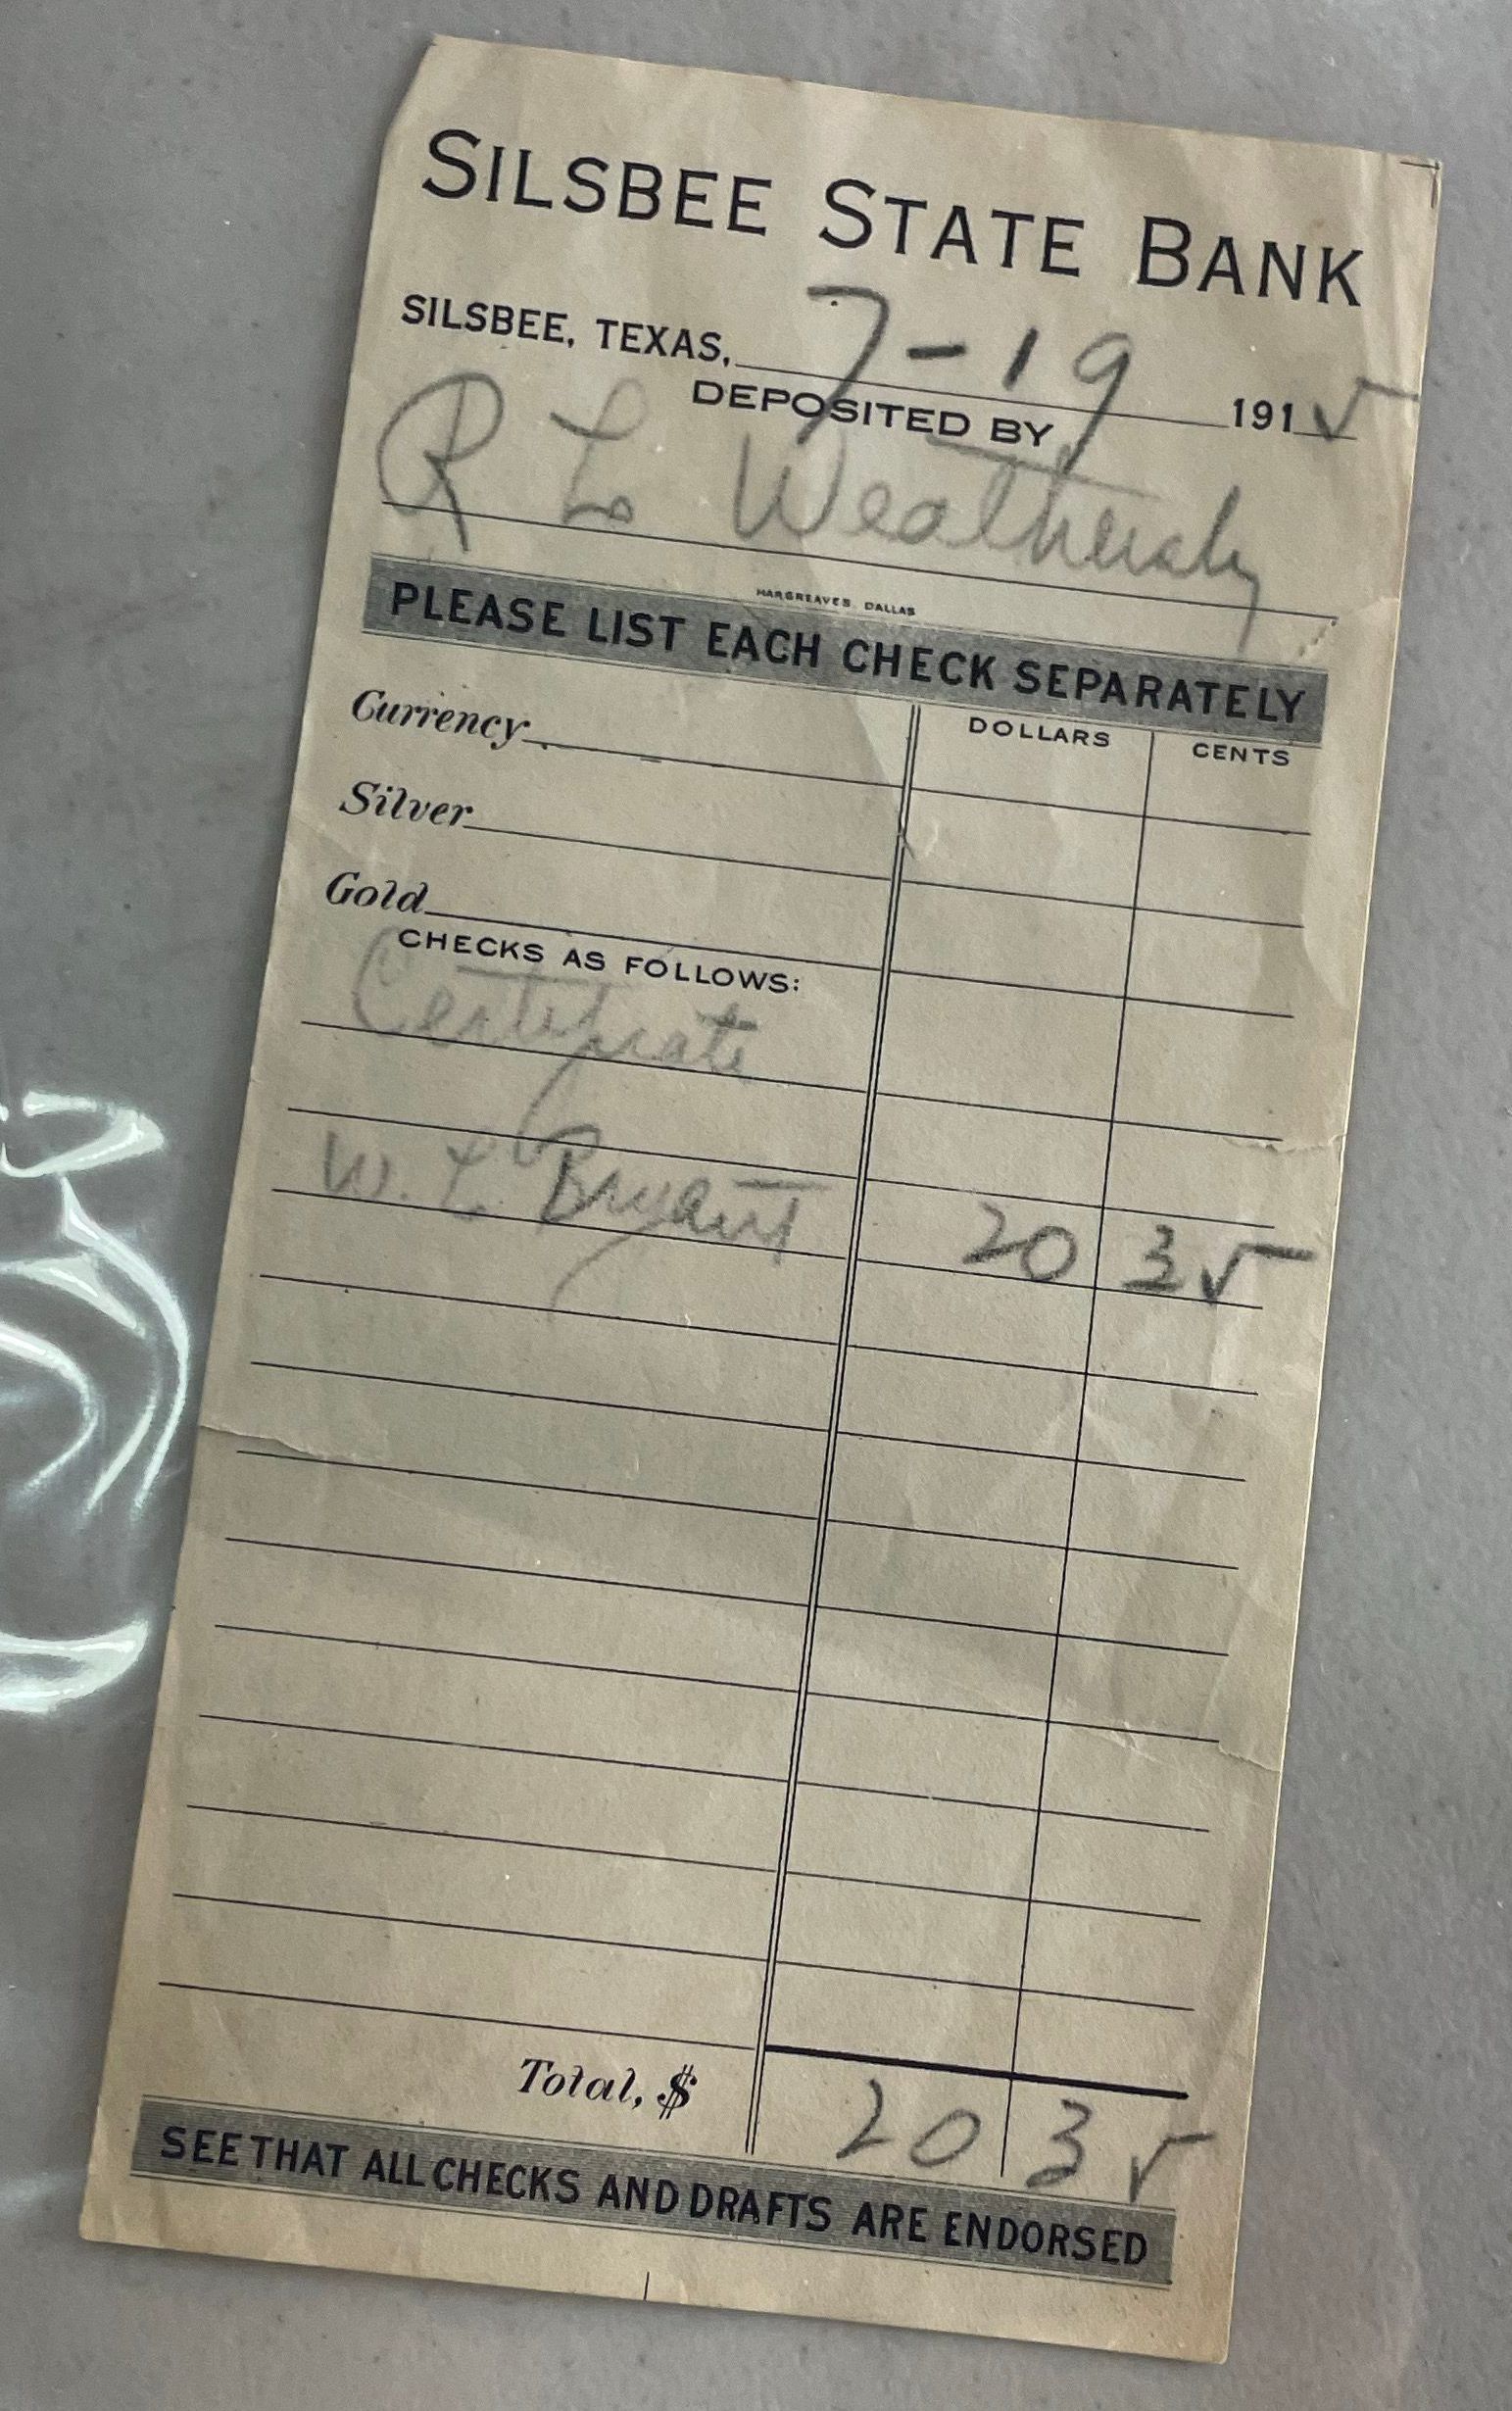 SILSBEE STATE BANK
SILSBEE, TEXAS, 7-19 1915
DEPOSITED BY
R L Weathersby
HARGREAVES DALLAS
PLEASE LIST EACH CHECK SEPARATELY
DOLLARS CENTS
Currency
Silver
Gold
CHECKS AS FOLLOWS:
Certificate
W. L. Bryant 20 35
Total, $ 20 35
SEE THAT ALL CHECKS AND DRAFTS ARE ENDORSED